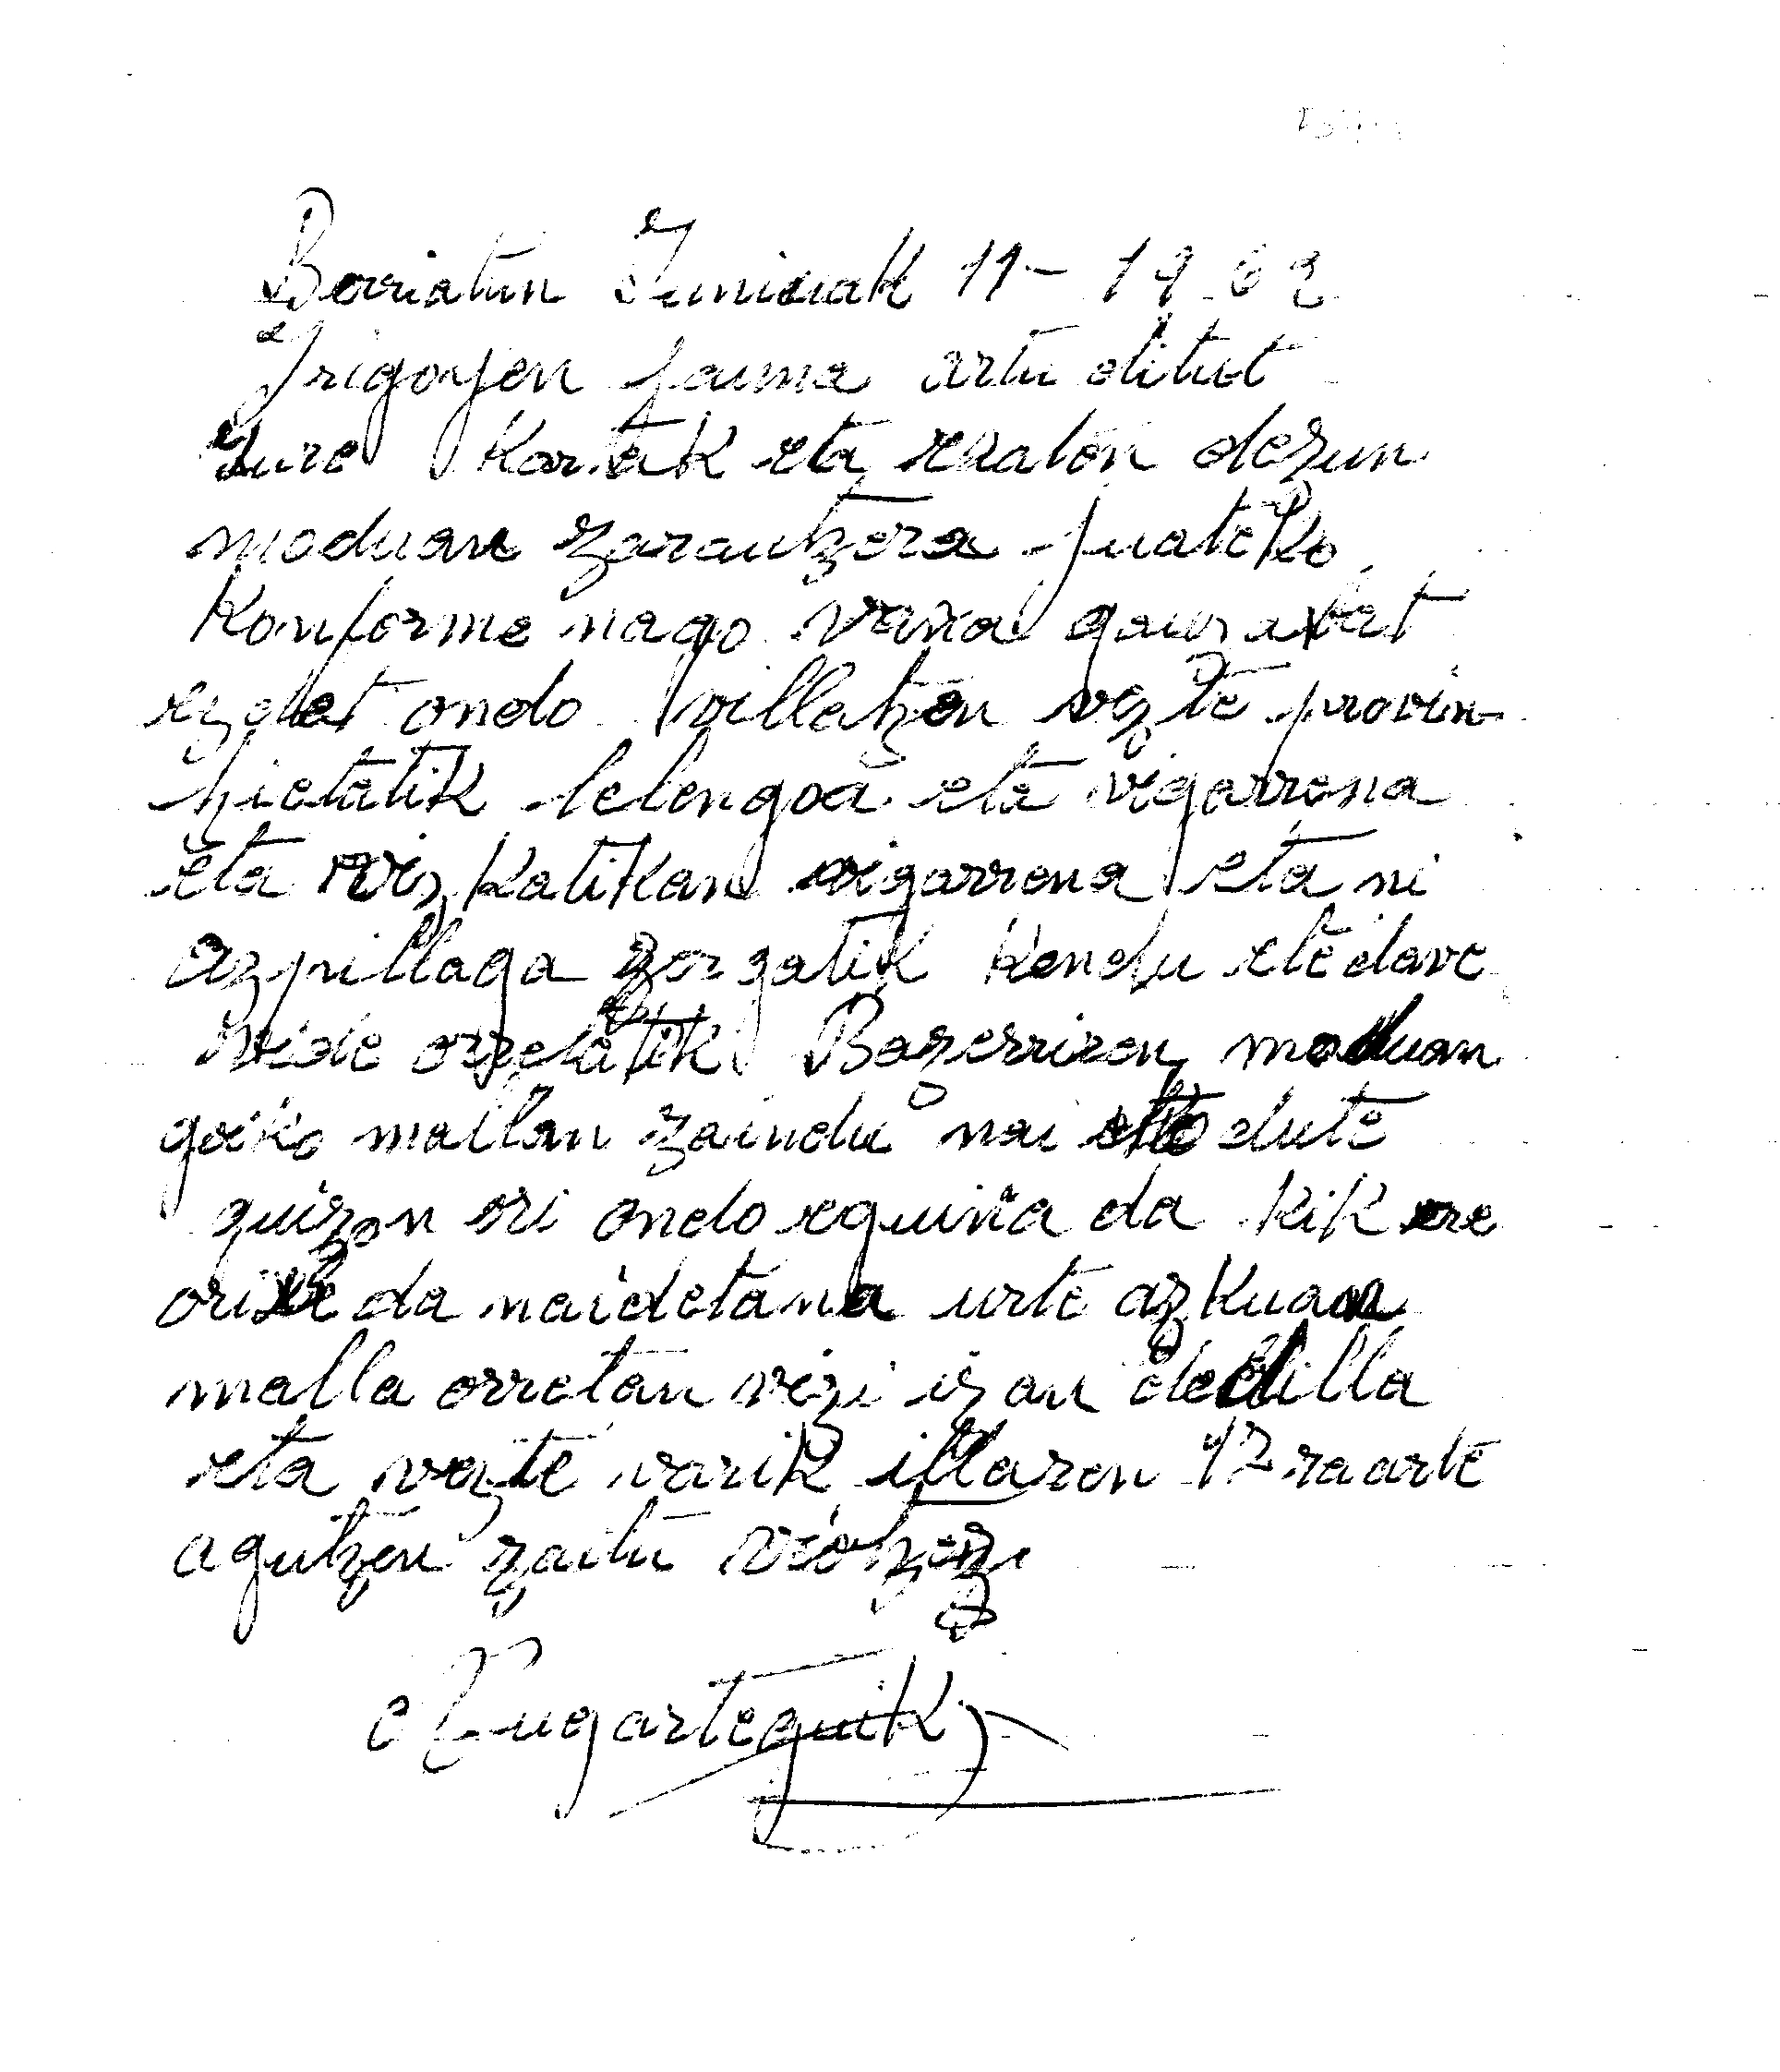 Berriatun Junioak 11-1962
Irigoyen jauna artu ditut
zure kartak eta esaten dezun
moduan zarautzera juateko
konforme nago vaña gauzavat
ezdet ondo villatzen vezte provin
tzietatik lelengoa eta vigarrena
eta vizkatikan vigarrena eta ni
azpillaga zorgatik kendu etedave
vide orretatik Bazerriren moduan
goiko mallan zaindu nai dute
guizon ori ondo eguiña da kik ere
orixe da naidetana urte azkuan
malla orretan vizi izan dedilla
eta vezte varik illaren 17 raarte
agutzen zaitu viotzez
Mugarteguik